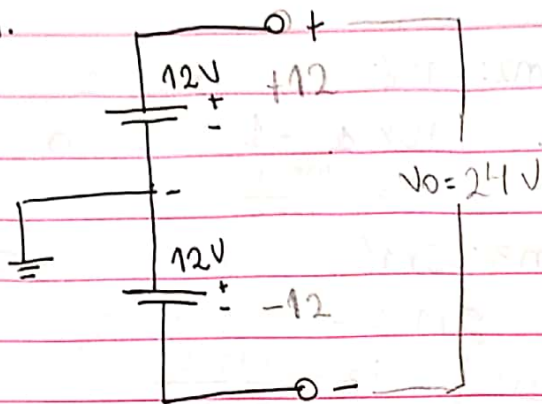 +
12V
+
+12
-
-
Vo = 24 V
12V
+
-
-12
-